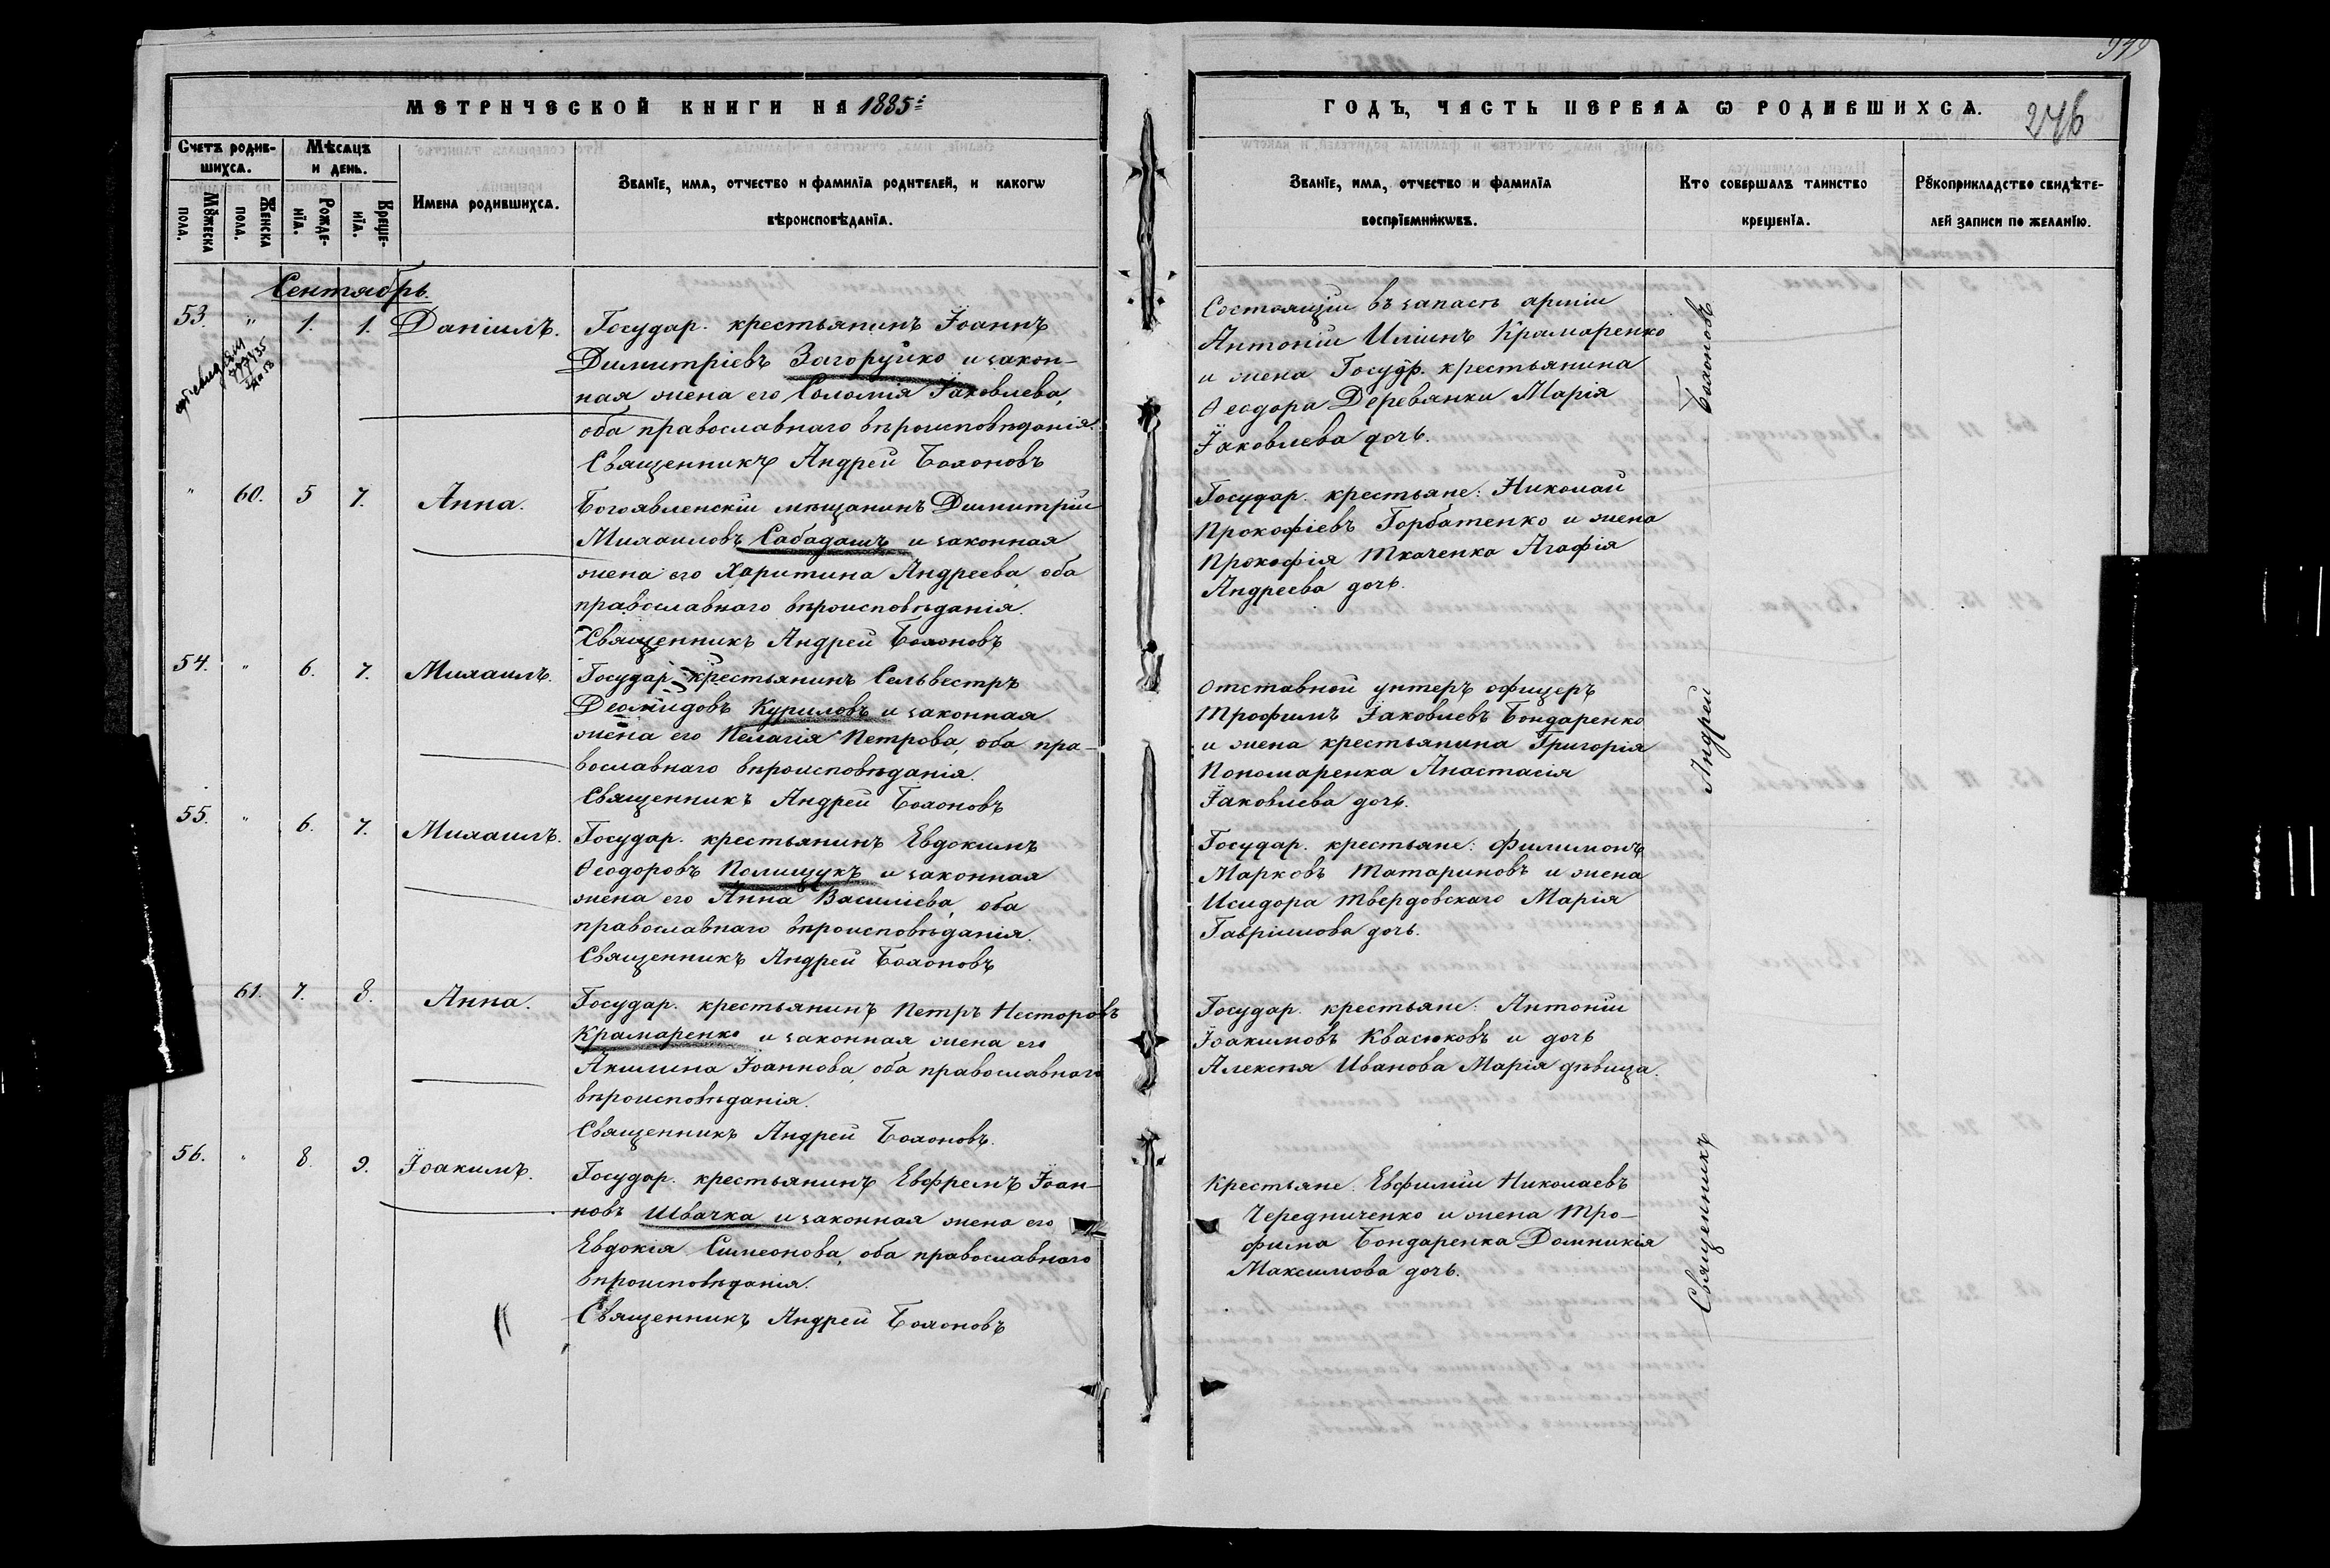 МЕТРИЧЕСКОЙ КНИГИ НА 1885й
Счетъ родив-
шихся.
Мѣсяцъ
и день.
Мужеска
пола.
Женска
пола.
Рожде-
нія.
Креще-
нія.
Имена родившихся.
Званіе, имя, отчество и фамилія родителей, и какогѡ
вѣроисповѣданія.
Сентябрь.
53. " 1. 1. Даніилъ.
Государ. крестьянинъ Іоаннъ
Димитріевъ Загоруйко и закон-
ная жена его Соломія Іаковлева,
оба православнаго вѣроисповѣданія.
Священникъ Андрей Бахоновъ
" 60. 5 7. Анна.
Богоявленскій мѣщанинъ Димитрій
Михаиловъ Сабадашъ и законная
жена его Харитина Андреева, оба
православнаго вѣроисповѣданія.
Священникъ Андрей Бахоновъ
54. " 6. 7. Михаилъ.
Государ. крестьянинъ Сельвестръ
Деомидовъ Куриловъ и законная
жена его Пелагія Петрова, оба пра-
вославнаго вѣроисповѣданія.
Священникъ Андрей Бахоновъ
55. " 6. 7. Михаилъ.
Государ. крестьянинъ Евдокимъ
Ѳеодоровъ Полищукъ и законная
жена его Анна Василіева, оба
православнаго вѣроисповѣданія.
Священникъ Андрей Бахоновъ
61. 7. 8. Анна.
Государ. крестьянинъ Петръ Несторовъ
Крамаренко и законная жена его
Акилина Іоаннова, оба православнаго
вѣроисповѣданія.
Священникъ Андрей Бахоновъ.
56. " 8. 9. Іоакимъ.
Государ. крестьянинъ Евфремъ Іоан-
новъ Швачка и законная жена его
Евдокія Симеонова, оба православнаго
вѣроисповѣданія.
Священникъ Андрей Бахоновъ
ГОДЪ, ЧАСТЬ ПЕРВАЯ Ѡ РОДИВШИХСЯ.
246
Званіе, имя, отчество и фамилія
воспріемникѡвъ.
Кто совершалъ таинство
крещенія.
Рукоприкладство свидѣте-
лей записи по желанію.
Состоящій въ запасѣ арміи
Антоній Иліинъ Крамаренко
и жена Госудр. крестьянина
Ѳеодора Деревянки Марія
Іаковлева дочь.
Государ. крестьяне: Николай
Прокофіевъ Горбатенко и жена
Прокофія Ткаченка Агафія
Андреева дочь.
Отставной унтеръ офицеръ
Трофимъ Іаковлевъ Бондаренко
и жена крестьянина Григорія
Пономаренка Анастасія
Іаковлева дочь.
Государ. крестьяне: Филимонъ
Марковъ Татариновъ и жена
Исидора Твердовскаго Марія
Гавріилова дочь.
Государ. крестьяне: Антоній
Іоакимовъ Квасюковъ и дочь
Алексѣя Иванова Марія дѣвица.
Крестьяне: Евфимій Николаевъ
Чередниченко и жена Тро-
фима Бондаренка Домникія
Максимова дочь.
Священникъ Андрей Бахоновъ